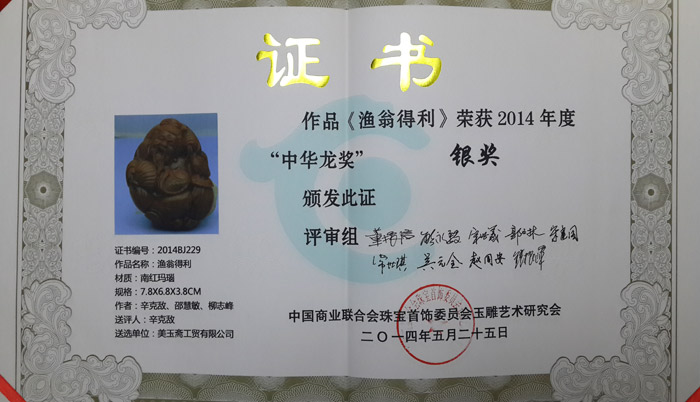 证书
作品《渔翁得利》荣获2014年度
“中华龙奖” 银奖
颁发此证
评审组
证书编号：2014BJ229
作品名称：渔翁得利
材质：南红玛瑙
规格：7.8X6.8X3.8CM
作者：辛克敌、邵慧敏、柳志峰
送评人：辛克敌
送选单位：美玉斋工贸有限公司
中国商业联合会珠宝首饰委员会玉雕艺术研究会
二〇一四年五月二十五日